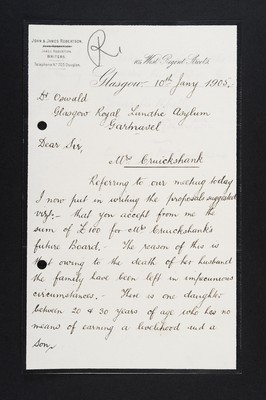 JOHN & JAMES ROBERTSON.
WRITERS.
Telephone No 700 Douglas
R
West Regent Street,
Glasgow 10th Jany 1905.
Dr Oswald
Glasgow Royal Lunatic Asylum
Gartnavel
Dear Sir,
Mrs Cruickshank
Referring to our meeting today
I now put in writing the proposals suggested
vizt;- that you accept from me the
sum of £100 for Mrs Cruickshank's
future Board. The reason of this is
that owing to the death of her husband
the family have been left in impecunious
circumstances. - There is one daughter
between 20 & 30 years of age who has no
means of earning a livelihood and a
son,